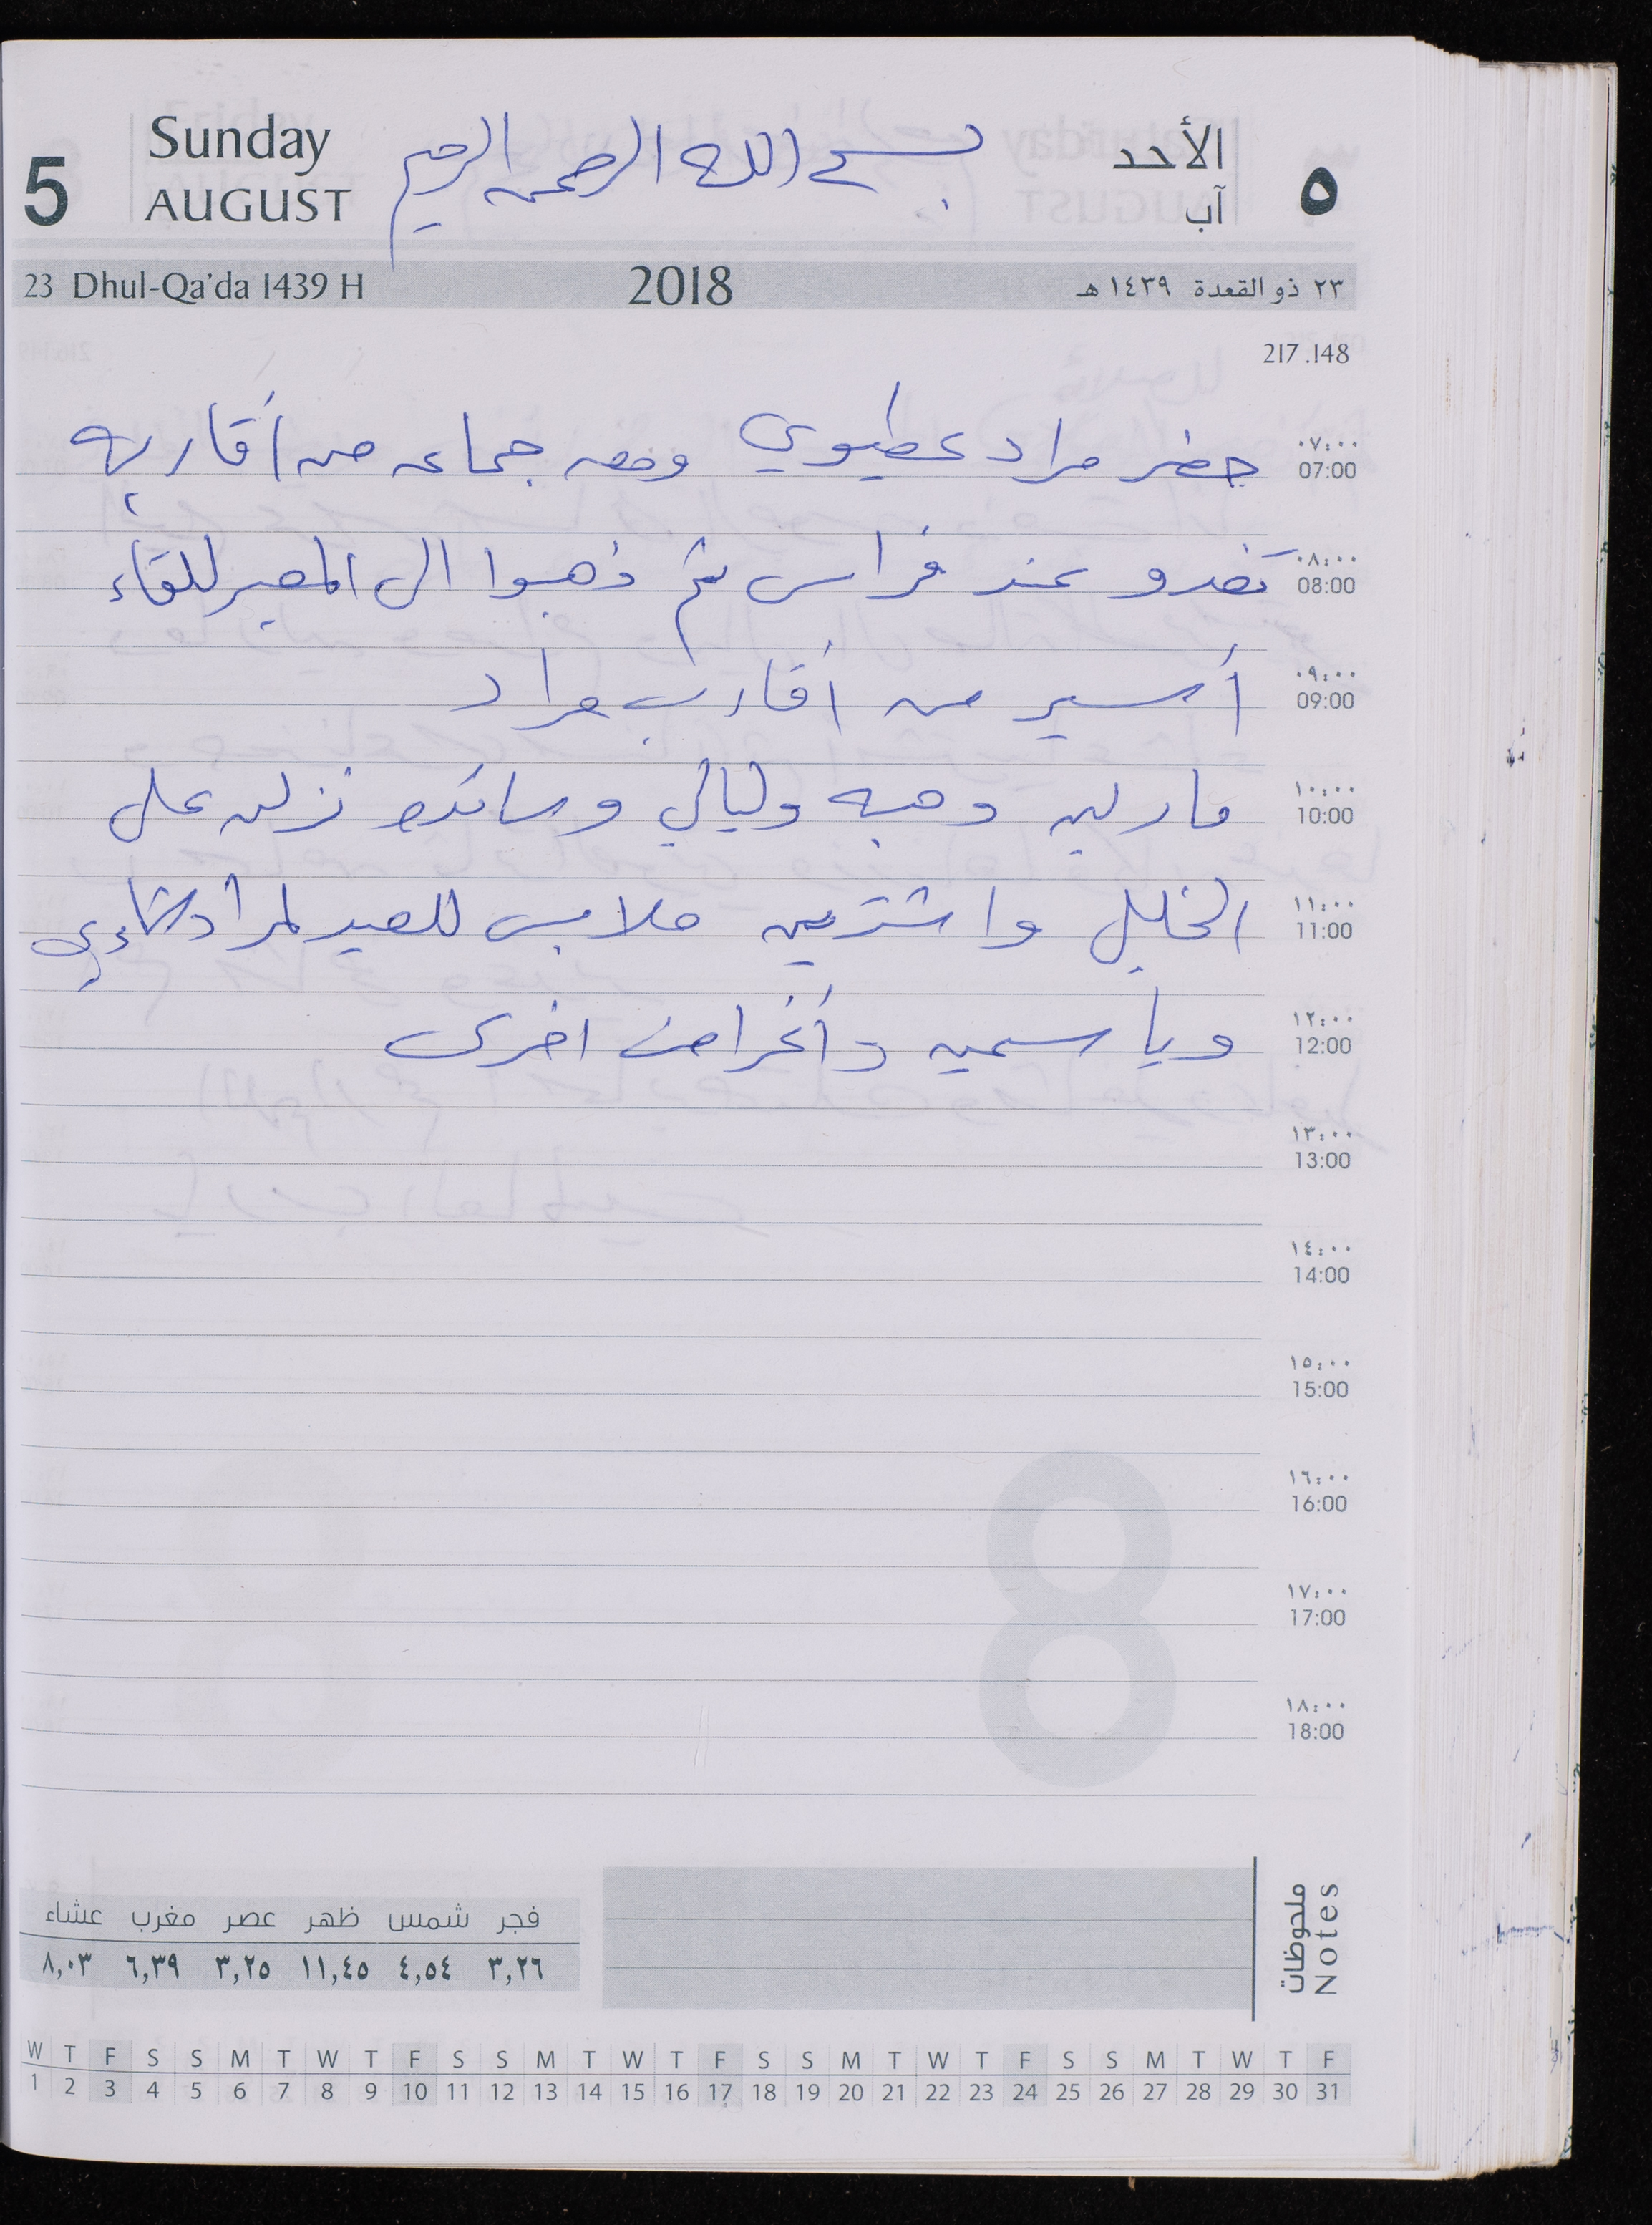 5 Sunday AUGUST
بسم الله الرحمن الرحيم
الأحد ٥
آب
23 Dhul-Qa'da 1439 H 2018 ٢٣ ذو القعدة ١٤٣٩ هـ
217.148
حضر مراد عطيوي ومعه جماعه من أقاربه
٠٧:٠٠
07:00
تغدو عند فراس ثم ذهبوا الى المعبر للقاء
٠٨:٠٠
08:00
أسير من أقارب مراد
٠٩:٠٠
09:00
مارلين وهبه وليالي وسائده نزلن على
١٠:٠٠
10:00
الخليل واشترين ملابس للعيد لمراد
١١:٠٠
11:00
وياسمين وأغراض اخرى
١٢:٠٠
12:00
١٣:٠٠
13:00
١٤:٠٠
14:00
١٥:٠٠
15:00
١٦:٠٠
16:00
١٧:٠٠
17:00
١٨:٠٠
18:00
8
ملحوظات
Notes
فجر شمس ظهر عصر مغرب عشاء
٣,٢٦ ٤,٥٤ ١١,٤٥ ٣,٢٥ ٦,٣٩ ٨,٠٣
W T F S S M T W T F S S M T W T F S S M T W T F S S M T W T F
1 2 3 4 5 6 7 8 9 10 11 12 13 14 15 16 17 18 19 20 21 22 23 24 25 26 27 28 29 30 31